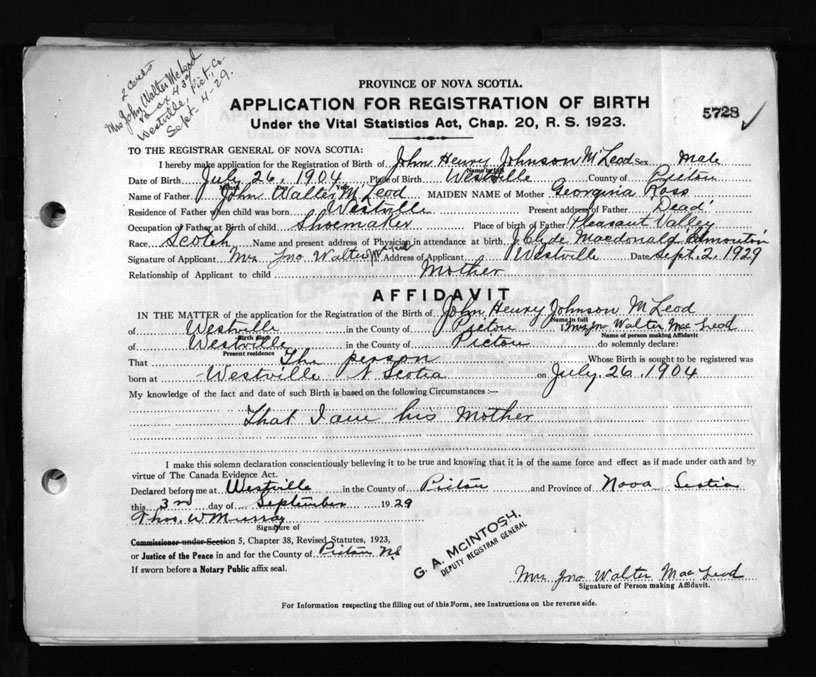 2 certs
Mrs John Walter McLeod
Box 437
Westville, Pict. Co.
Sept. 4-29.
PROVINCE OF NOVA SCOTIA.
APPLICATION FOR REGISTRATION OF BIRTH
5728
Under the Vital Statistics Act, Chap. 20, R. S. 1923.
TO THE REGISTRAR GENERAL OF NOVA SCOTIA:
I hereby make application for the Registration of Birth of John Henry Johnson McLeod Sex Male
Name in full
Date of Birth July 26, 1904 Place of Birth Westville County of Pictou
Name of Father John Walter McLeod MAIDEN NAME of Mother Georgina Ross
Residence of Father when child was born Westville Present address of Father Dead
Occupation of Father at Birth of child Shoemaker Place of birth of Father Pleasant Valley
Race Scotch Name and present address of Physician in attendance at birth J. Clyde Macdonald Edmonton
Signature of Applicant Mrs. Jno Walter McLeod Address of Applicant Westville Date Sept. 2, 1929
Relationship of Applicant to child Mother
AFFIDAVIT
IN THE MATTER of the application for the Registration of the Birth of John Henry Johnson McLeod
Name in full
of Westville in the County of Pictou I Mrs Jn Walter MacLeod
Birth place
Name of person making Affidavit
of Westville in the County of Pictou do solemnly declare:
Present residence
That The person Whose Birth is sought to be registered was
born at Westville N Scotia on July 26, 1904
My knowledge of the fact and date of such Birth is based on the following Circumstances :—
That I am his Mother
I make this solemn declaration conscientiously believing it to be true and knowing that it is of the same force and effect as if made under oath and by
virtue of The Canada Evidence Act.
Declared before me at Westville in the County of Pictou and Province of Nova Scotia
this 3rd day of September 1929
Thos. W Murray
Signature of
Commissioner under Section 5, Chapter 38, Revised Statutes, 1923,
or Justice of the Peace in and for the County of Pictou NS
If sworn before a Notary Public affix seal.
G. A. McINTOSH.
DEPUTY REGISTRAR GENERAL
Mrs Jno Walter MacLeod
Signature of Person making Affidavit.
For Information respecting the filling out of this Form, see Instructions on the reverse side.